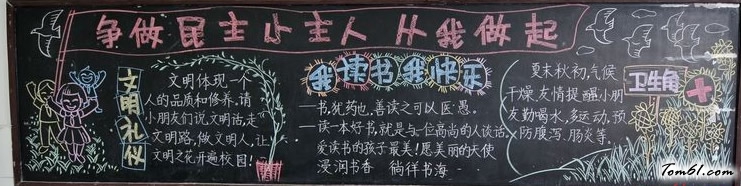 争做民主小主人 从我做起
文明礼仪
文明体现一个
人的品质和修养,请
小朋友们说文明话,走
文明路,做文明人,让
文明之花开遍校园!
我读书我快乐
一书,犹药也,善读之可以医愚。
一读一本好书,就是与一位高尚的人谈话。
爱读书的孩子最美!愿美丽的天使
浸润书香 徜徉书海
夏末秋初,气候
干燥,友情提醒小朋
友勤喝水,多运动,预
防腹泻、肠炎等。
卫生角
Tom61.com